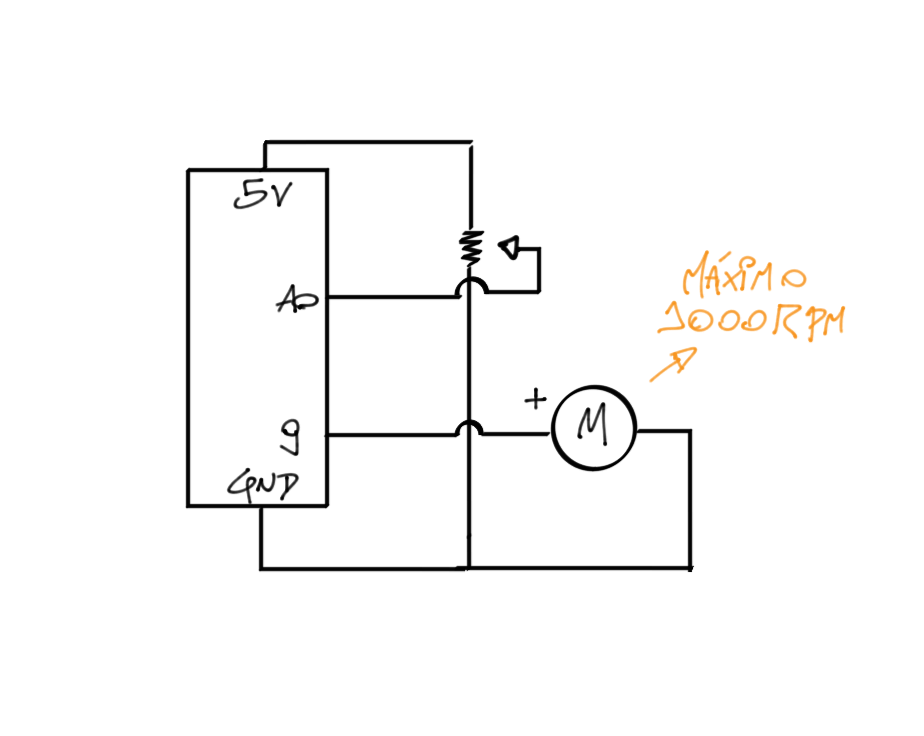 5V
A0
9
GND
+
M
MÁXIMO
1000RPM